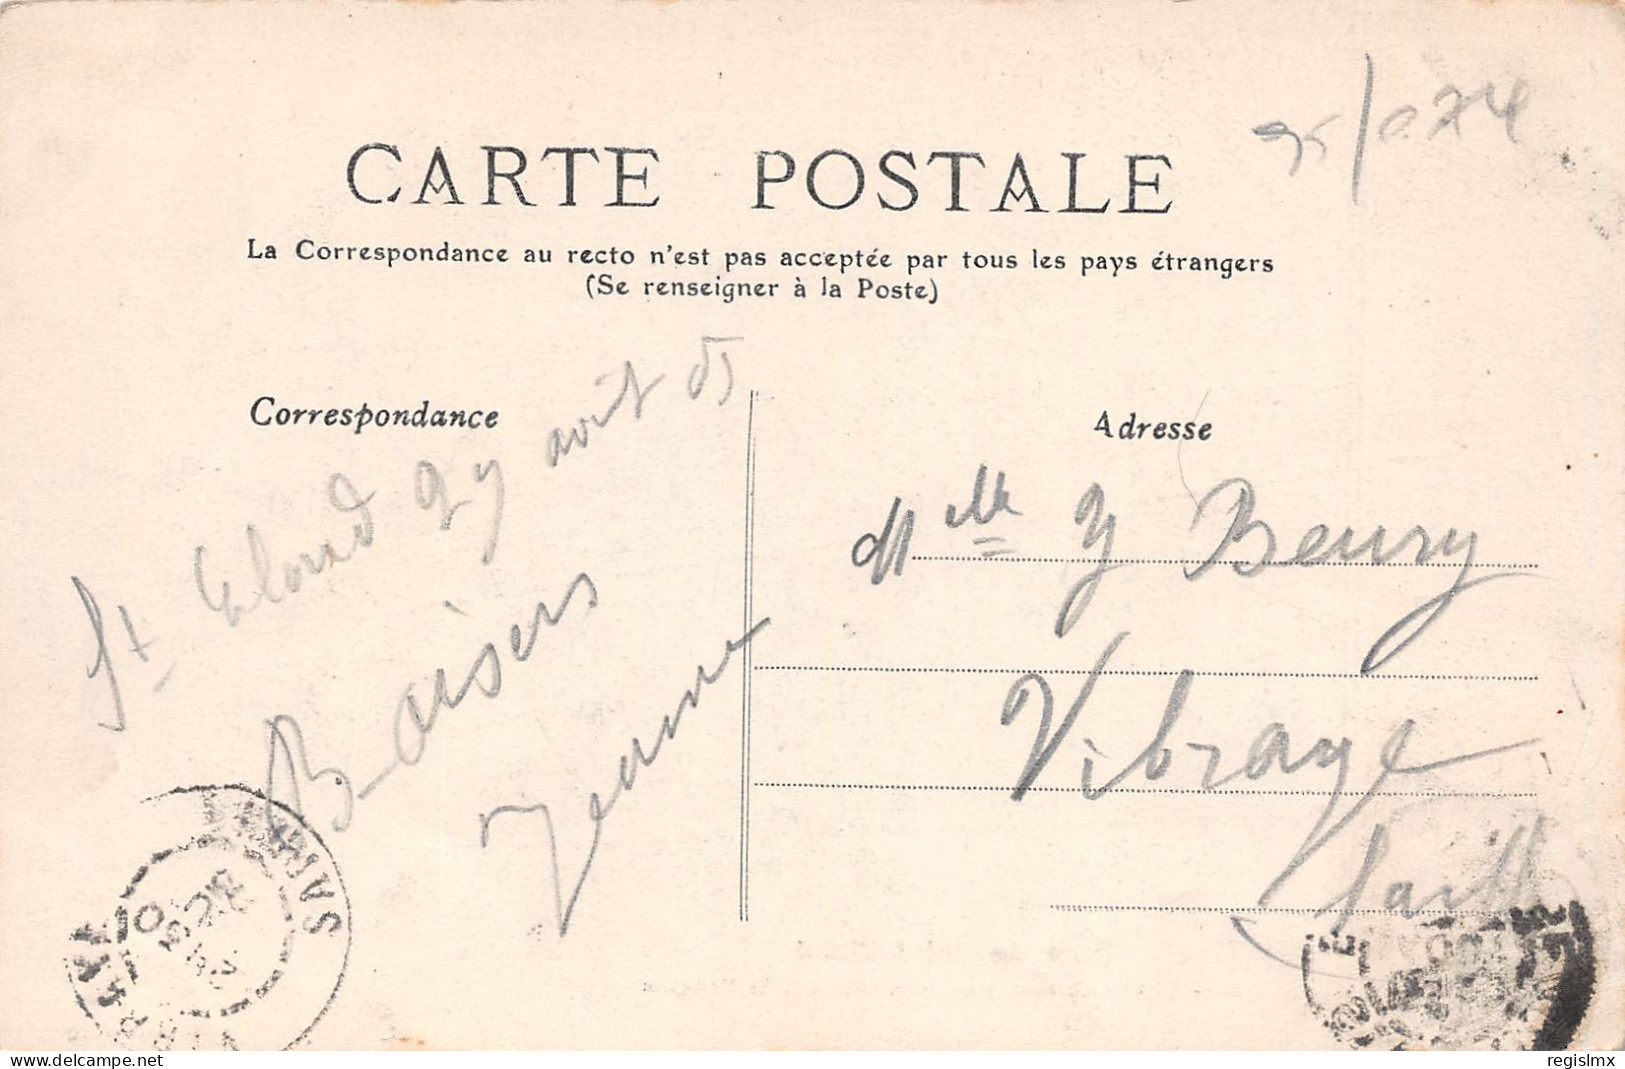 CARTE POSTALE
La Correspondance au recto n'est pas acceptée par tous les pays étrangers
(Se renseigner à la Poste)
Correspondance
St Cloud 27 août 05
Baisers
Jeanne
Adresse
Mlle Y Beury
Vibraye
Sarthe
SARTHE
delcampe.net
regislmx